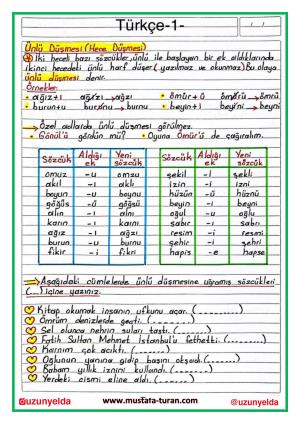 Türkçe-1-
Ünlü Düşmesi (Hece Düşmesi)
İki heceli bazı sözcükler, ünlü ile başlayan bir ek aldıklarında
ikinci hecedeki ünlü harf düşer (yazılmaz ve okunmaz). Bu olaya
ünlü düşmesi denir.
Örnekler:
• ağız+ı ağızı → ağzı • ömür+ü ömürü → ömrü
• burun+u burunu → burnu • beyin+i beyini → beyni
→ Özel adlarda ünlü düşmesi görülmez.
• Gönül'ü gördün mü? • Oyuna Ömür'ü de çağıralım.
Sözcük Aldığı ek Yeni sözcük Sözcük Aldığı ek Yeni sözcük
omuz -u omzu şekil -i şekli
akıl -ı aklı izin -i izni
boyun -u boynu hüzün -ü hüznü
göğüs -ü göğsü beyin -i beyni
alın -ı alnı oğul -u oğlu
karın -ı karnı sabır -ı sabrı
ağız -ı ağzı resim -i resmi
burun -u burnu şehir -i şehri
fikir -i fikri hapis -e hapse
→ Aşağıdaki cümlelerde ünlü düşmesine uğramış sözcükleri
(...) içine yazınız.
Kitap okumak insanın ufkunu açar. (........)
Ömrüm denizlerde geçti. (........)
Sel olunca nehrin suları taştı. (........)
Fatih Sultan Mehmet İstanbul'u fethetti. (........)
Karnım çok acıktı. (........)
Oğlunun yanına gidip başını okşadı. (........)
Babam yıllık iznini kullandı. (........)
Yerdeki cismi eline aldı. (........)
@uzunyelda www.mustafa-turan.com @uzunyelda